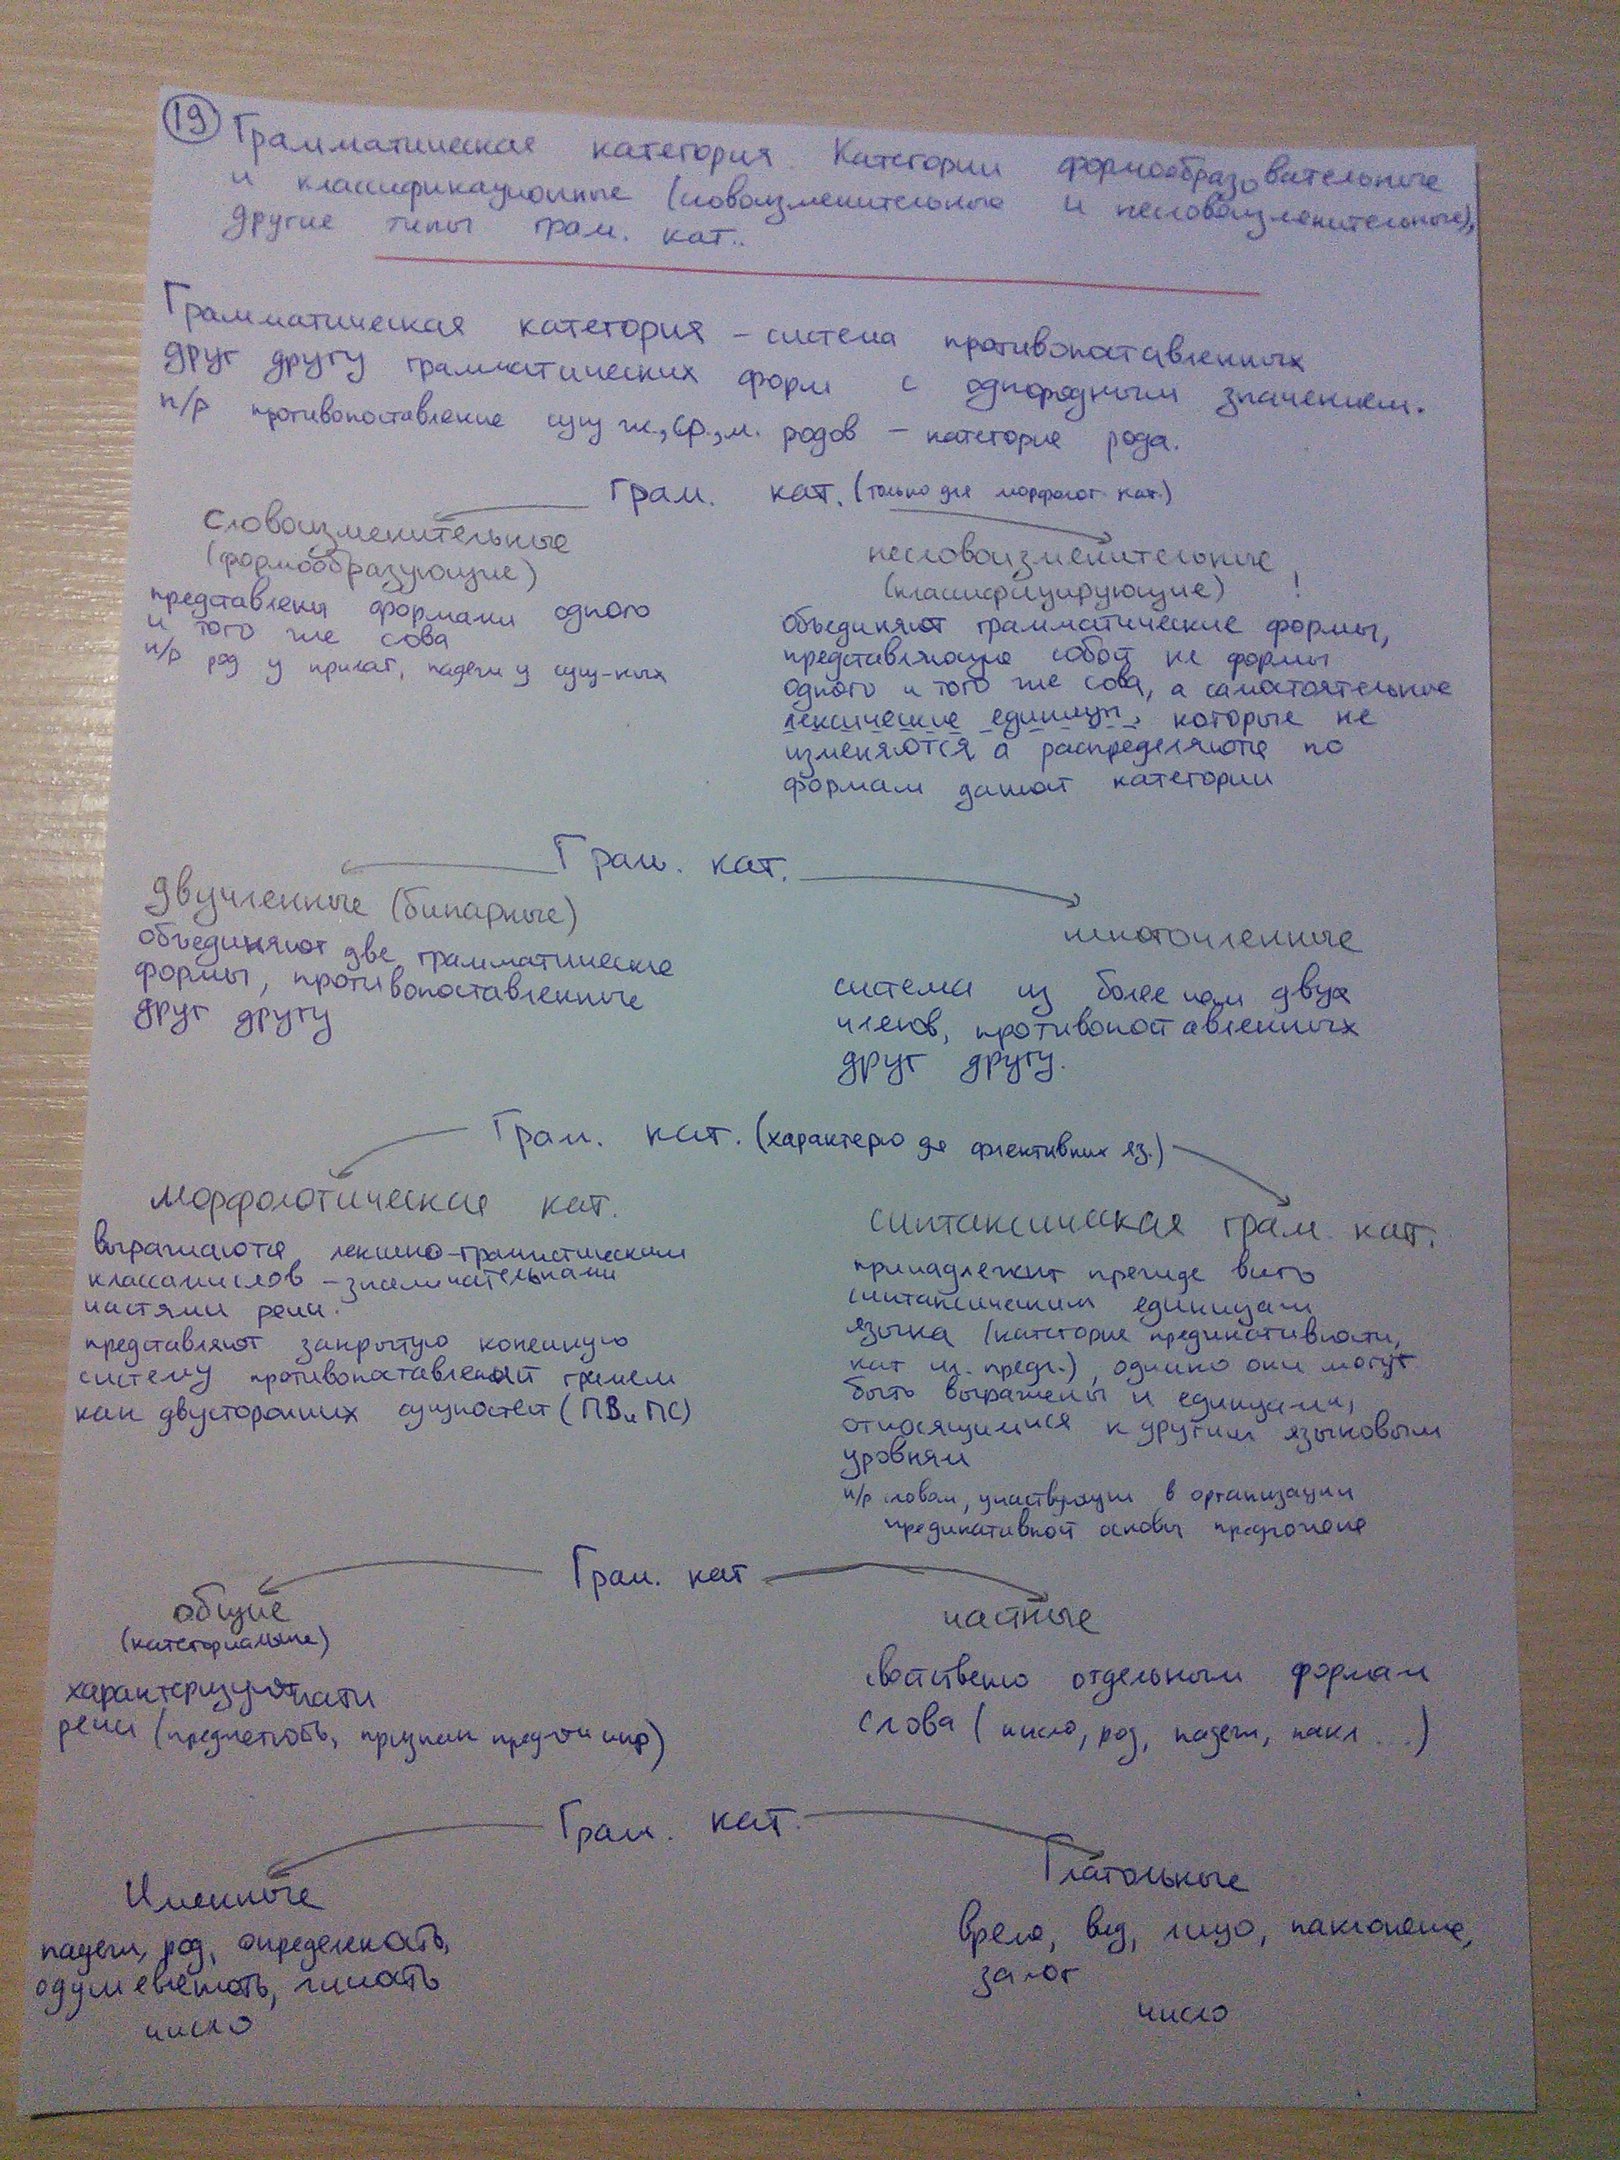 19 Грамматическая категория. Категории формообразовательные
и классификационные (словоизменительные и несловоизменительные),
другие типы грам. кат..
Грамматическая категория – система противопоставленных
друг другу грамматических форм с однородным значением.
п/р противопоставление сущ ж., ср., м. родов – категория рода.
грам. кат. (только для морфолог. кат.)
словоизменительные
(формообразующие)
представлены формами одного
и того же сова
п/р род у прилаг, падеж у сущ-ных
несловоизменительные
(классифицирующие) !
объединяют грамматические формы,
представляющие собой не формы
одного и того же сова, а самостоятельные
лексические единицы, которые не
изменяются, а распределяются по
формам данной категории
Грам. кат.
двучленные (бинарные)
объединяют две грамматические
формы, противопоставленные
друг другу
многочленные
система из более чем двух
членов, противопоставленных
друг другу.
Грам. кат. (характерно для флективных яз.)
морфологическая кат.
выражаются лексико-грамматическими
классами слов – знаменательными
частями речи.
представляют закрытую конечную
систему противопоставлений граммем
как двусторонних сущностей (ПВ и ПС)
синтаксическая грам. кат.
принадлежит прежде всего
синтаксическим единицам
языка (категория предикативности,
кат чл. предл.), однако они могут
быть выражены и единицами,
относящимися к другим языковым
уровням
п/р словом, участвующим в организации
предикативной основы предложения
Грам. кат
общие
(категориальные)
характеризуют части
речи (предметность, признак
частные
свойственно отдельным формам
слова (число, род, падеж, накл...)
Грам. кат.
Именные
падеж, род, определенность,
одушевленность,
число
Глагольные
время, вид, лицо, наклонение,
залог
число